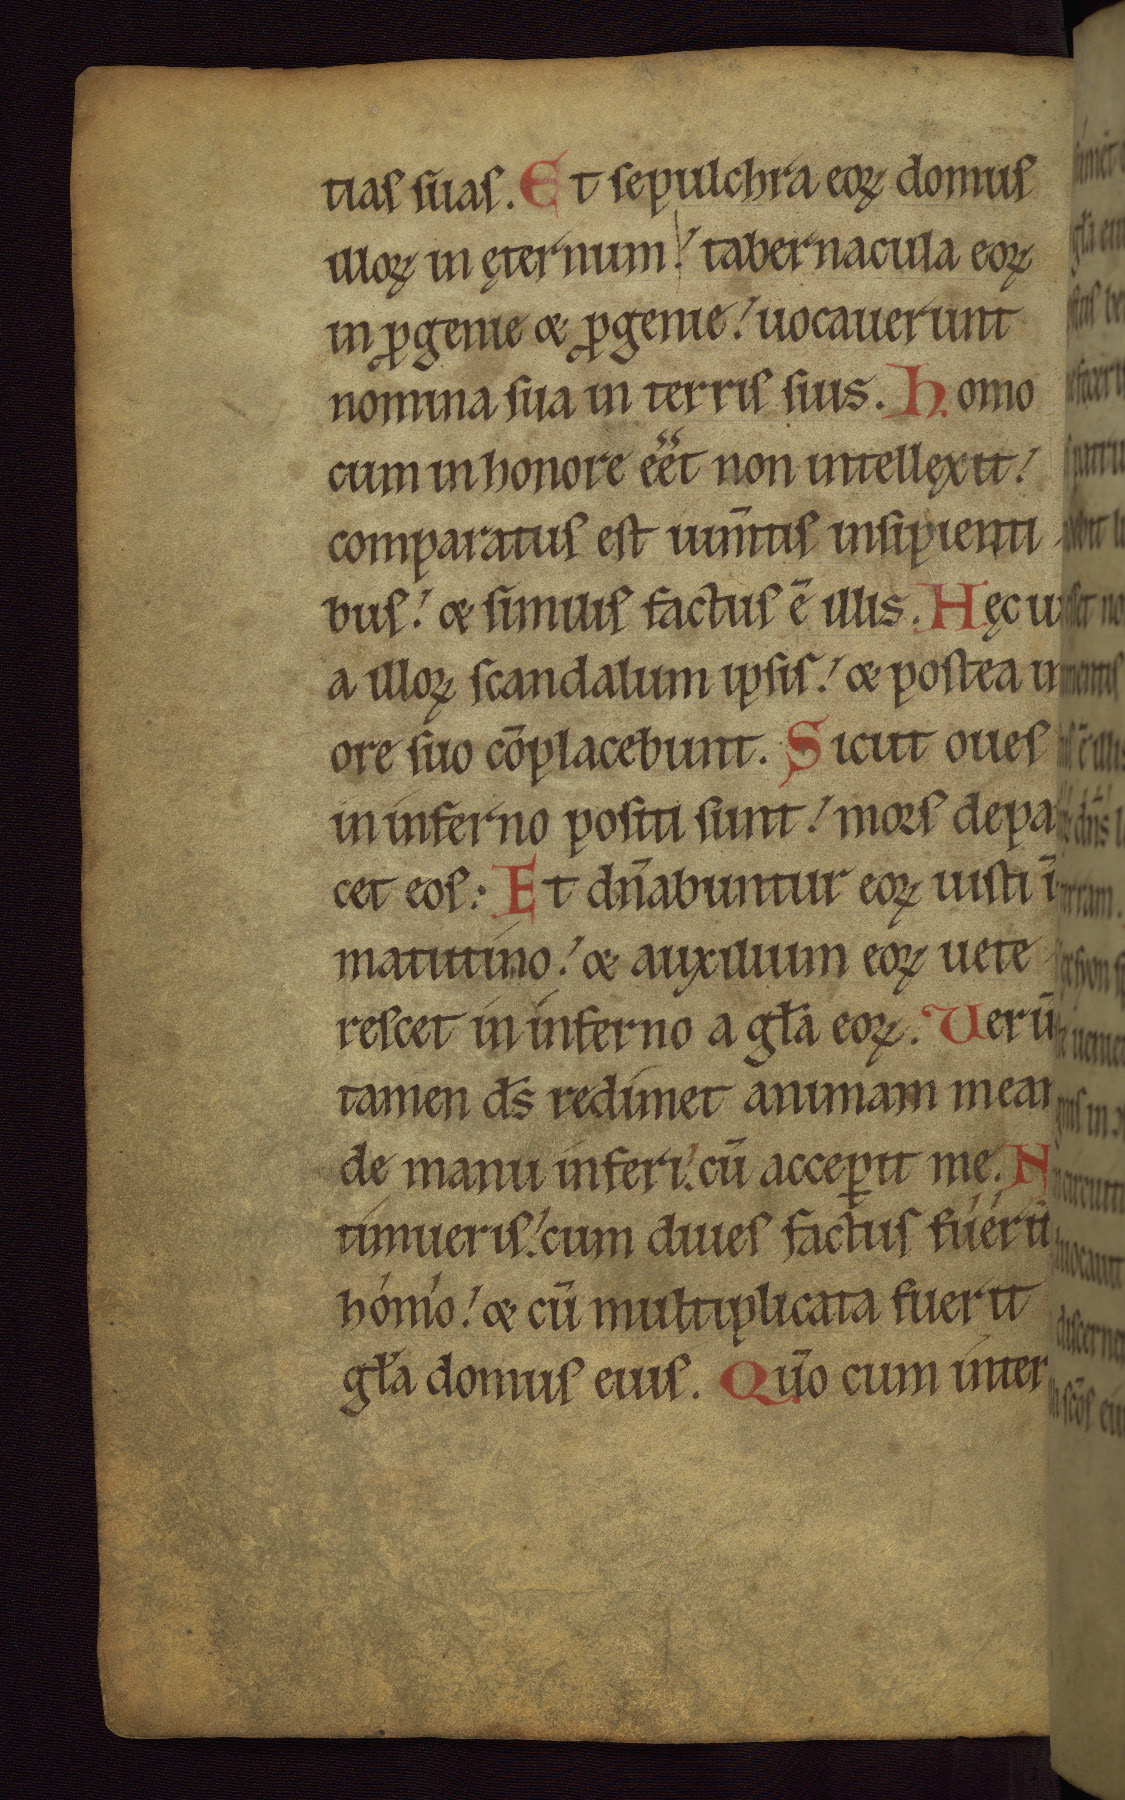 tias suas. Et sepulchra eoꝝ domus
illoꝝ in ęternum! tabernacula eoꝝ
in ꝓgenie & ꝓgenie! uocauerunt
nomina sua in terris suis. Homo
cum in honore eet non intellexit!
comparatus est ium̅tis insipienti
bus! & similis factus ē illis. Hęc ui
a illoꝝ scandalum ipsis! & postea in
ore suo cōplacebunt. Sicut oues
in inferno positi sunt! mors depa
cet eos. Et dn̄abuntur eoꝝ iusti ī
matutino! & auxilium eoꝝ uete
rescet in inferno a gła eoꝝ. Uerū
tamen ds̄ redimet animam meam
de manu inferi! cū acceꝑit me. N
timueris! cum diues factus fuerit
homo! & cū multiplicata fuerit
gła domus eius. Quō cum inter